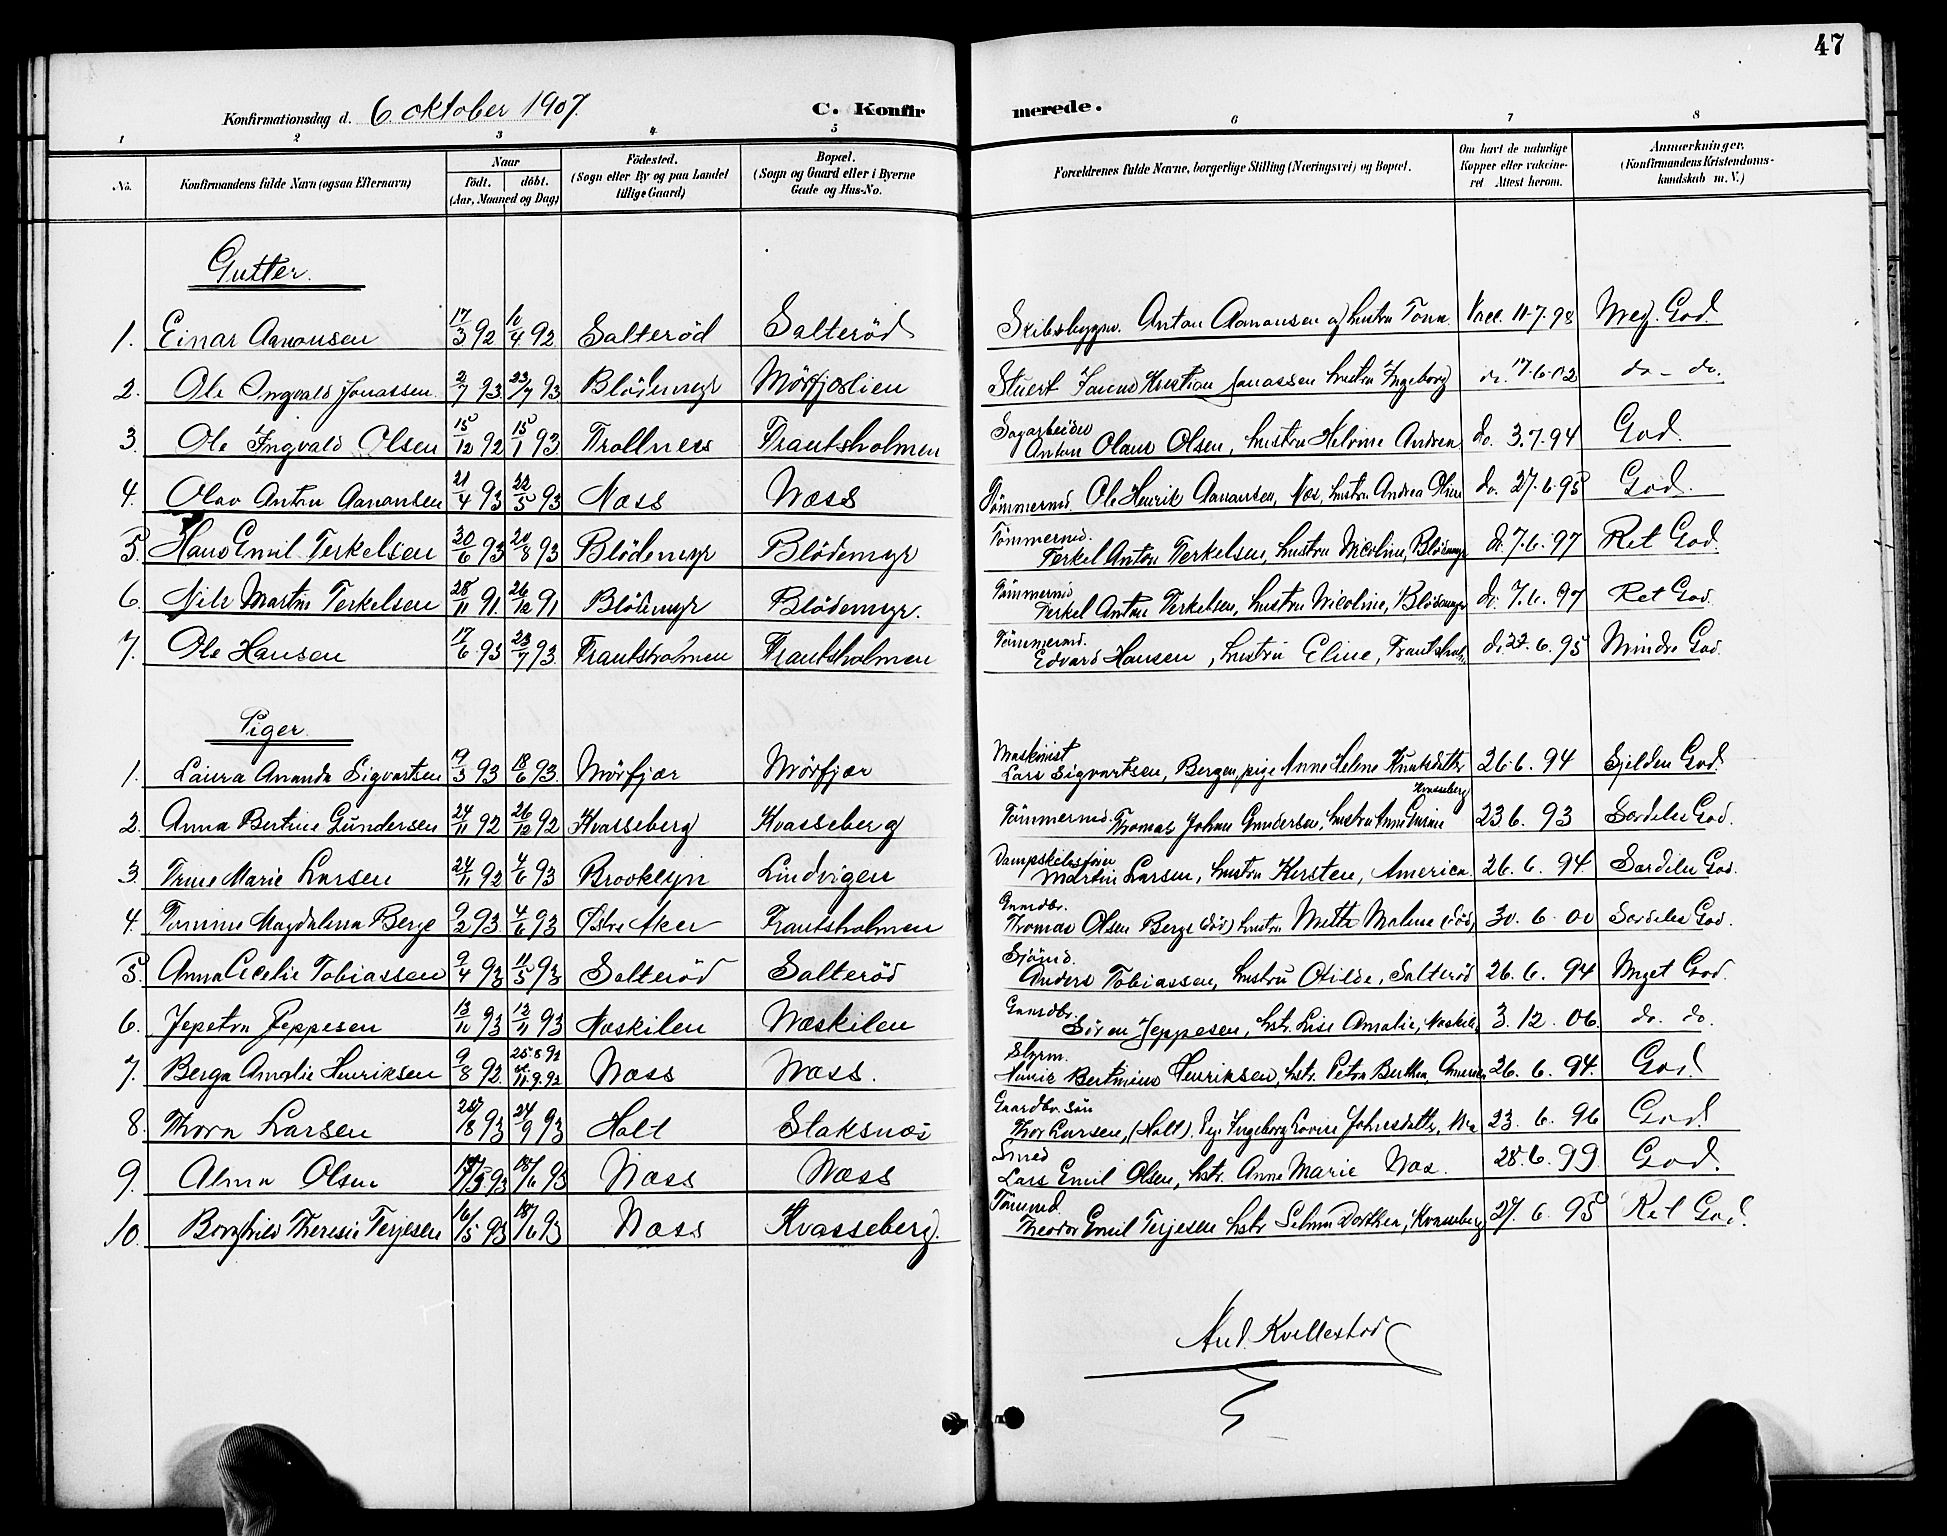 47
Konfirmationsdag d. 6 oktober 1907. C. Konfirmerede.
1 2 3 4 5 6 7 8
No. Konfirmandens fulde Navn (ogsaa Efternavn) Naar födt. döbt. (Aar, Maaned og Dag) Födested. (Sogn eller By og paa Landet tillige Gaard) Bopæl. (Sogn og Gaard eller i Byerne Gade og Hus-No. Forældrenes fulde Navne, borgerlige Stilling (Næringsvei) og Bopæl. Om havt de naturlige Kopper eller vakcineret Attest herom. Anmærkninger, (Konfirmandens Kristendomskundskab m. V.)
Gutter.
1. Einar Aanonsen 17/3 92 10/4 92 Salteröd Salteröd Skibsbygm. Anton Aanonsen og hustru Tona Vacc. 11.7.98 Meg. God.
2. Ole Ingvald Jonassen 2/7 93 23/7 93 Blödemyr Mörfjærlien Stuert Kristian Jonassen hustru Ingeborg do. 17.6.02 do - do.
3. Ole Ingvald Olsen 15/12 92 15/1 93 Trollness Frautsholmen Sagarbeider Anton Olaus Olsen, hustru Helvine Andrea do. 3.7.94 God.
4. Olav Anton Aanonsen 21/4 93 22/5 93 Næss Næss Tömmermd. Ole Henrik Aanonsen, Næs, hustru Andrea Oline do. 27.6.95 God.
5. Hans Emil Terkelsen 30/6 93 20/8 93 Blödemyr Blödemyr Tömmermd. Terkel Anton Terkelsen, hustru Nicoline, Blödemyr do. 7.6.97 Ret God.
6. Nils Martin Terkelsen 28/11 91 26/12 91 Blödemyr Blödemyr. Tömmermd Terkel Anton Terkelsen, hustru Nicoline, Blödemyr do. 7.6.97 Ret God.
7. Ole Hansen 17/6 93 23/7 93 Frautsholmen Frautsholmen Tömmermd. Edvard Hansen, hustru Eline, Frautsholm. do. 22.6.95 Mindre God.
Piger.
1. Laura Amanda Sigvartsen 19/3 93 18/6 93. Mörfjær Mörfjær Maskinist Lars Sigvartsen, Bergen, pige Anne Helene Knutsdatter 26.6.94 Sjelden God.
2. Anna Bertine Gundersen 24/11 92 26/12 92 Kvasseberg Kvasseberg Tömmermd. Thomas Johan Gundersen, hustru Anne Gurine Kvasseberg 23.6.93 Særdeles God.
3. Trine Marie Larsen 24/11 92 4/6 93 Brooklyn Lindvigen Martin Larsen, hustru Kirsten, America 26.6.94 Særdeles God.
4. Tomine Magdalena Berge 9/2 93 4/6 93 Östre Aker Frautsholmen Gaardbr. Thomas Olsen Berge (död) hustru Mette Malene (död) 30.6.00 Særdeles God.
5. Anna Cecelie Tobiassen 9/4 93 11/5 93 Salteröd Salteröd Sjömd. Anders Tobiassen, hustru Otilde, Salteröd 26.6.94 Meget God.
6. Jepetra Jeppesen 13/10 93 12/11 93 Næskilen Næskilen Gaardbr. Sören Jeppesen, hstr. Lise Amalie, Næskilen 3.12.06. do. do.
7. Berga Amalie Henriksen 9/8 92. 25.8.92 11.9.92 Næss Næss. Styrm. Bertinius Henriksen, hstr. Petra Berthea, America 26.6.94. God.
8. Thora Larsen 28/8 93 24/9 93 Holt Staksnæs Gaardbr. sön Thor Larsen, (Holt). Pige Ingeborg Lovise Johnsdatter, 23.6.96 God
9. Alma Olsen 18/6 93 Næss Næss Smed Lars Emil Olsen, hstr. Anne Marie Næs. 28.6.99. God.
10. Borghild Theresie Terjesen 16/5 93 18/6 93 Næss Kvasseberg. Tömmd. Theodor Emil Terjesen hstr Selma Dorthea, Kvasseberg 27.6.95 Ret God.
And. Kvillestad